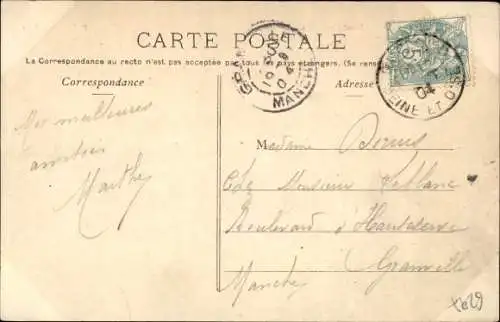 CARTE POSTALE
La Correspondance au recto n'est pas acceptée par tous les pays étrangers. (Se rens
Correspondance
Adresse
MANCHE
04
SEINE ET OISE
Mes meilleures
amitiés
Marthe
Madame
Chez Monsieur Leblanc
Boulevard d'Hauteserve
Granville
Manche